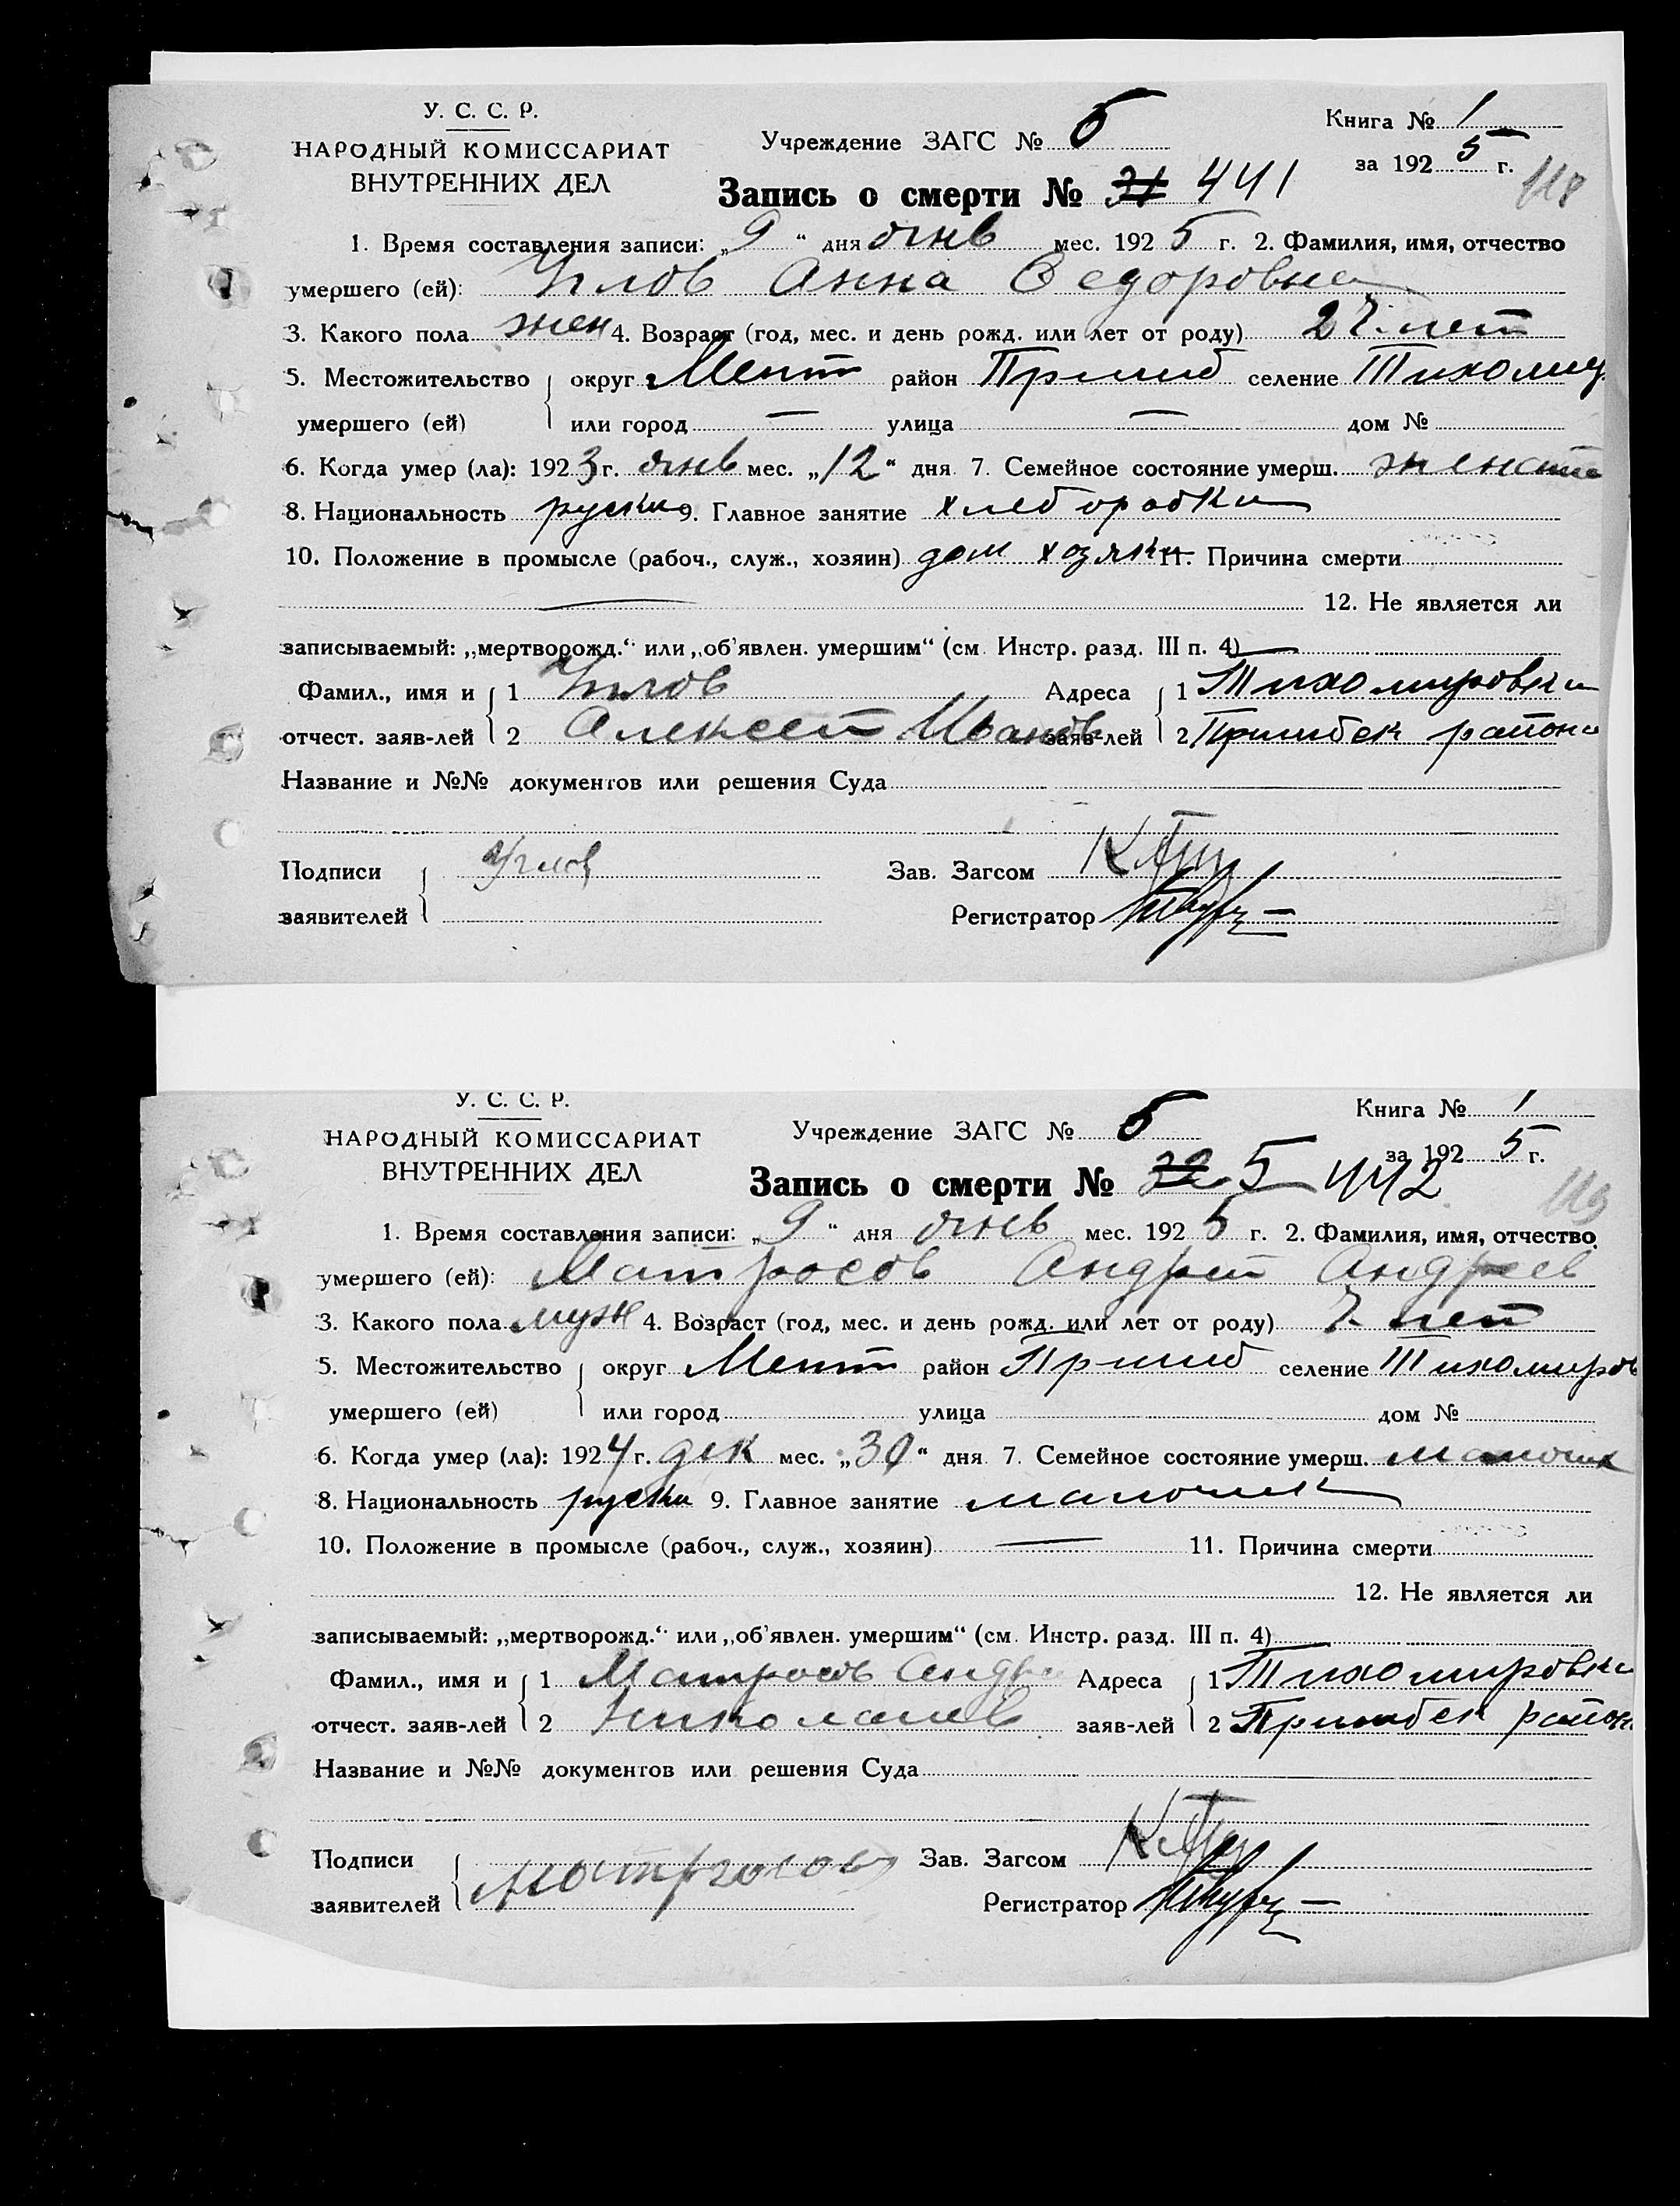 У. С. С. Р.
НАРОДНЫЙ КОМИССАРИАТ
ВНУТРЕННИХ ДЕЛ
Учреждение ЗАГС № 6
Книга № 1
за 1925 г.
Запись о смерти № 31 441
118
1. Время составления записи: „9“ дня янв мес. 1925 г. 2. Фамилия, имя, отчество
умершего (ей): Углов Анна Федоровна
3. Какого пола жен 4. Возраст (год, мес. и день рожд. или лет от роду) 27 лет
5. Местожительство округ Мелит район Пришиб селение Тихомир
умершего (ей) или город — улица — дом №
6. Когда умер (ла): 1923 г. янв мес. „12“ дня 7. Семейное состояние умерш. женат
8. Национальность руски 9. Главное занятие хлеборобка
10. Положение в промысле (рабоч., служ., хозяин) дом хозяйк 11. Причина смерти
— 12. Не является ли
записываемый: „мертворожд.“ или „об'явлен. умершим“ (см. Инстр. разд. III п. 4) —
Фамил., имя и 1 Углов Адреса 1 Тихомировка
отчест. заяв-лей 2 Алексей Иванов заяв-лей 2 Пришибск района
Название и №№ документов или решения Суда
Подписи Углов Зав. Загсом
заявителей Регистратор
У. С. С. Р.
НАРОДНЫЙ КОМИССАРИАТ
ВНУТРЕННИХ ДЕЛ
Учреждение ЗАГС № 6
Книга № 1
за 1925 г.
Запись о смерти № 32 5 442
119
1. Время составления записи: „9“ дня янв мес. 1925 г. 2. Фамилия, имя, отчество
умершего (ей): Матросов Андрей Андреев
3. Какого пола муж 4. Возраст (год, мес. и день рожд. или лет от роду) 7 лет
5. Местожительство округ Мелит район Пришиб селение Тихомиров
умершего (ей) или город улица дом №
6. Когда умер (ла): 1924 г. дек мес. „30“ дня 7. Семейное состояние умерш. малочик
8. Национальность руски 9. Главное занятие малочик
10. Положение в промысле (рабоч., служ., хозяин) — 11. Причина смерти
12. Не является ли
записываемый: „мертворожд.“ или „об'явлен. умершим“ (см. Инстр. разд. III п. 4)
Фамил., имя и 1 Матросов Андре Адреса 1 Тихомировка
отчест. заяв-лей 2 Николаев заяв-лей 2 Пришибск район
Название и №№ документов или решения Суда
Подписи Матросов Зав. Загсом
заявителей Регистратор